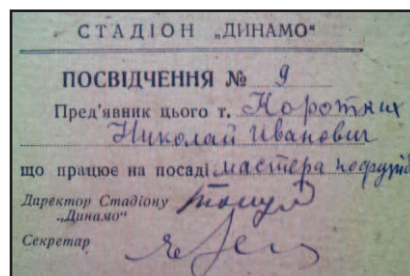 СТАДІОН „ДИНАМО“
ПОСВІДЧЕННЯ № 9
Пред'явник цього т. Коротких
Николай Иванович
що працює на посаді мастера
Директор Стадіону
„Динамо“
Секретар